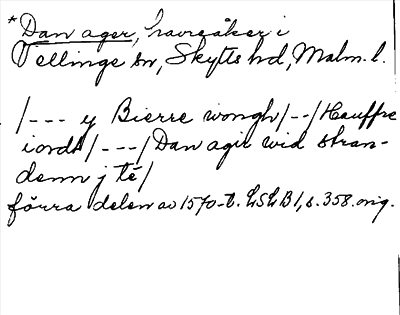 *Dan ager, havreåker i
Vellinge sn, Skytts hd, Malm. l.
/--- y Bierre wongh/--/Hauffre
iordt/---/Dan ager wid stran-
denn j tē/
förra delen av 1570-t. LSLB1, s. 358. orig.